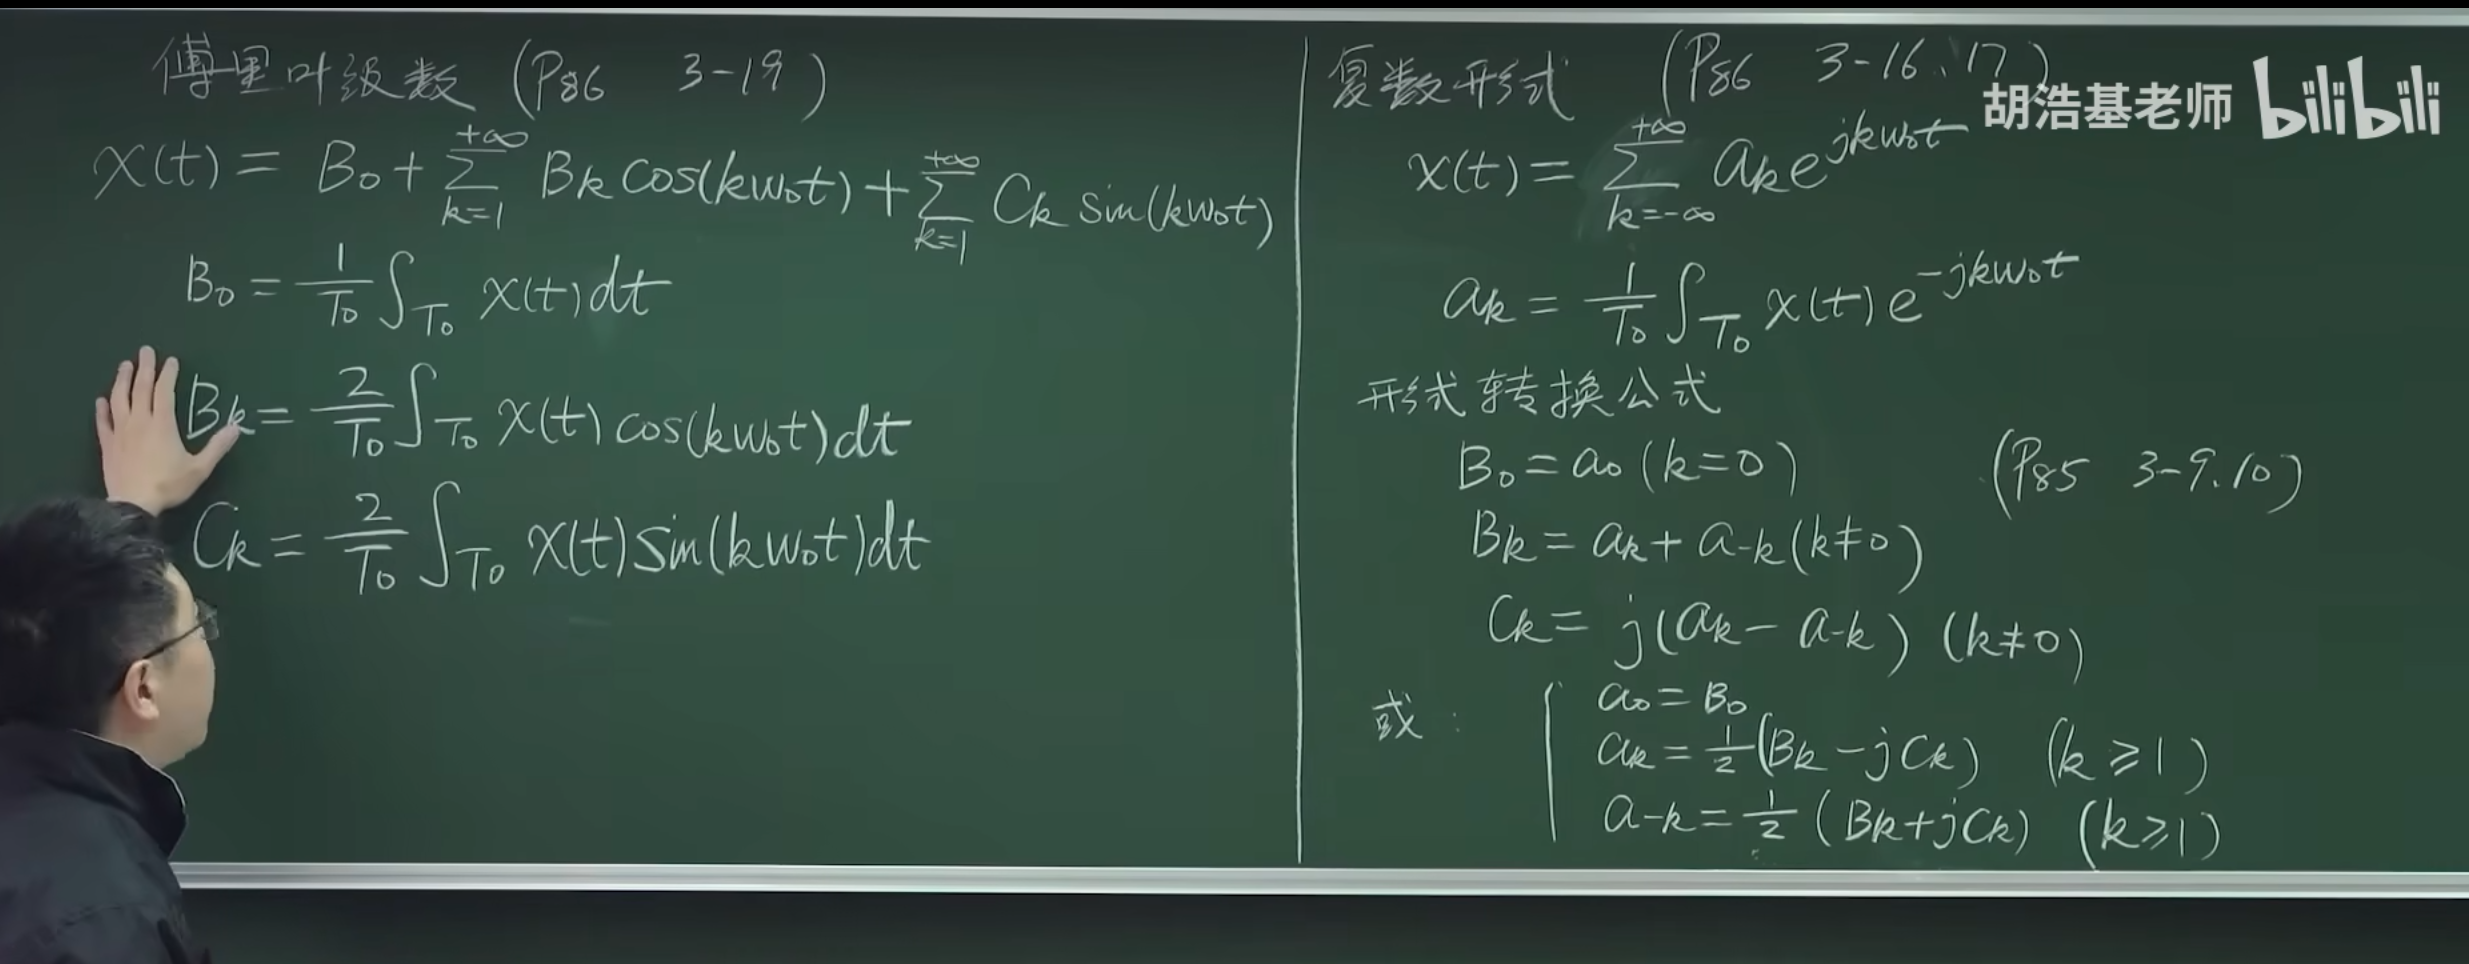 傅里叶级数 (P86 3-19)
x(t) = B₀ + ∑_{k=1}^{+∞} Bₖ cos(kw₀t) + ∑_{k=1}^{+∞} Cₖ sin(kw₀t)
B₀ = 1/T₀ ∫_{T₀} x(t)dt
Bₖ = 2/T₀ ∫_{T₀} x(t) cos(kw₀t)dt
Cₖ = 2/T₀ ∫_{T₀} x(t) sin(kw₀t)dt
复数形式 (P86 3-16、17)
胡浩基老师 bilibili
x(t) = ∑_{k=-∞}^{+∞} aₖ e^{jkw₀t}
aₖ = 1/T₀ ∫_{T₀} x(t) e^{-jkw₀t}
形式转换公式
B₀ = a₀ (k=0) (P85 3-9.10)
Bₖ = aₖ + a₋ₖ (k≠0)
Cₖ = j(aₖ - a₋ₖ) (k≠0)
或: { a₀ = B₀
aₖ = 1/2 (Bₖ - jCₖ) (k≥1)
a₋ₖ = 1/2 (Bₖ + jCₖ) (k≥1)